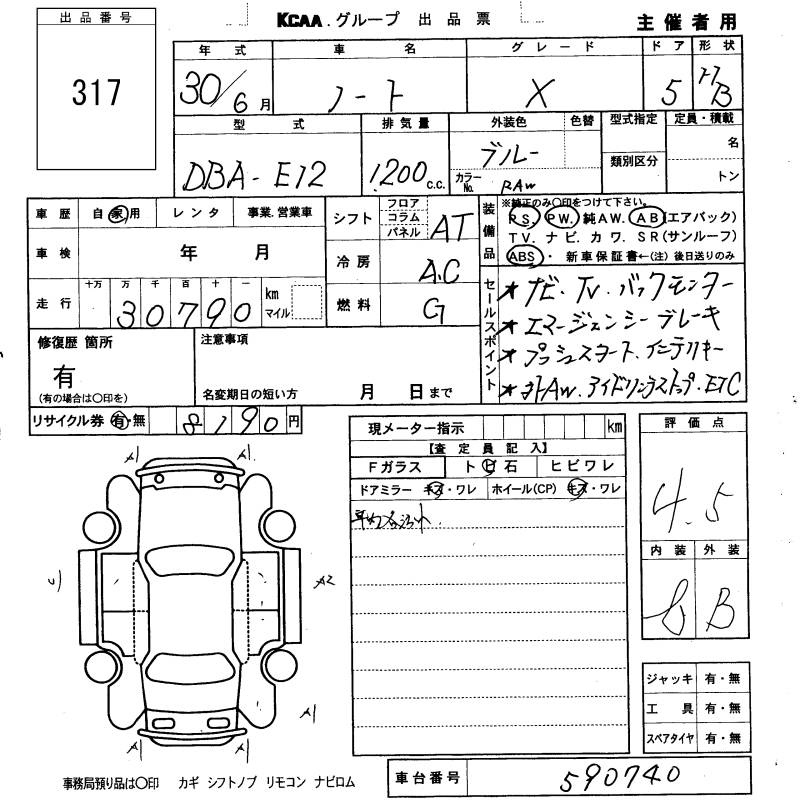 出品番号
317
KCAA.グループ 出品票
主催者用
年式 車名 グレード ドア 形状
30/6月 ノート X 5 H/B
型式 排気量 外装色 色替 型式指定 定員・積載
DBA-E12 1200 c.c. ブルー
名
類別区分
カラーNo. RAW
トン
車歴 自家用 レンタ 事業.営業車
シフト フロア コラム パネル AT
装備品 ※純正のみ○印をつけて下さい。
PS. PW. 純AW. AB(エアバック)
TV. ナビ. カワ. SR(サンルーフ)
ABS・ 新車保証書←(注)後日送りのみ
車検 年 月
冷房 AC
走行 十万 万 千 百 十 一 km マイル
30790
燃料 G
セールスポイント
★ナビ・TV・バックモニター
★エマージェンシーブレーキ
★プッシュスタート.インテリキー
★外AW.アイドリングストップ.ETC
修復歴 箇所
有
(有の場合は○印を)
注意事項
名変期日の短い方 月 日まで
リサイクル券 有・無 8190円
現メーター指示 km
【査定員記入】
Fガラス ト ビ 石 ヒビワレ
ドアミラー キズ・ワレ ホイール(CP) キズ・ワレ
評価点
4.5
内装 外装
B B
A1 A1
A2
A1
A1 A1
ジャッキ 有・無
工具 有・無
スペアタイヤ 有・無
事務局預り品は○印 カギ シフトノブ リモコン ナビロム
車台番号 590740